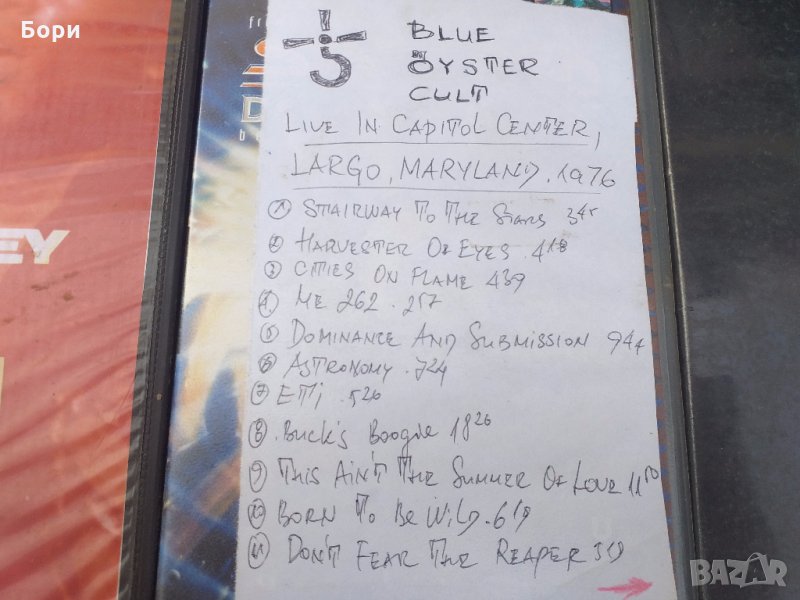 Бори
BLUE
ÖYSTER
CULT
LIVE IN CAPITOL CENTER,
LARGO, MARYLAND. 1976
① STAIRWAY TO THE STARS 345
② HARVESTER OF EYES. 418
③ CITIES ON FLAME 439
④ ME 262. 257
⑤ DOMINANCE AND SUBMISSION 944
⑥ ASTRONOMY. 724
⑦ ETI. 520
⑧ BUCK'S BOOGIE 1826
⑨ THIS AIN'T THE SUMMER OF LOVE 1150
⑩ BORN TO BE WILD. 619
⑪ DON'T FEAR THE REAPER 519
EY
BAZAR